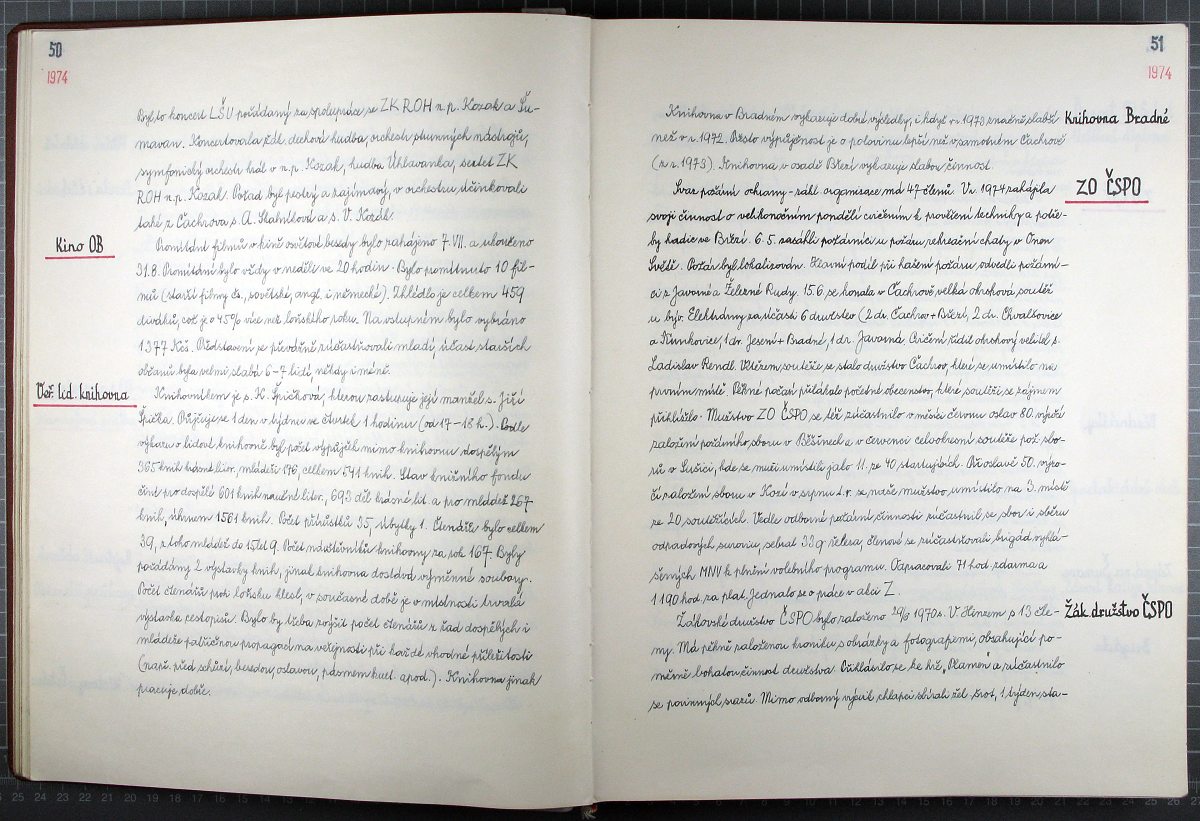 50
1974
Byl to koncert LŠU pořádaný za spolupráce se ZK ROH n.p. Kozak a Šu-
mavan. Koncertovala zákl. dechová hudba, orchestr strunných nástrojů,
symfonický orchestr hrál v n.p. Kozak, hudba Úhlavanka, sextet ZK
ROH n.p. Kozak. Pořad byl pestrý a zajímavý, v orchestru účinkovali
také z Čachrova s. A. Skalníková a s. V. Kozák.
Kino OB
Promítání filmů v kině osvětové besedy bylo zahájeno 7. VII. a ukončeno
31.8. Promítání bylo vždy v neděli ve 20 hodin. Bylo promítnuto 10 fil-
mů (starší filmy čs., sovětské, angl. i německé). Zhlédlo je celkem 459
diváků, což je o 45% více než loňského roku. Na vstupném bylo vybráno
1377 Kčs. Představení se převážně zúčastňovali mladí, účast starších
občanů byla velmi slabá 6-7 lidí, někdy i méně.
Veř. lid. knihovna
Knihovníkem je s. H. Špičková, kterou zastupuje její manžel s. Jiří
Špička. Půjčuje se 1 den v týdnu ve čtvrtek 1 hodinu (od 17-18 h.). Podle
výkazu o lidové knihovně byl počet výpůjček mimo knihovnu dospělým
365 knih krásné liter. mládeži 176, celkem 541 knih. Stav knižního fondu
činí pro dospělé 601 knih naučné liter., 693 děl krásné lit. a pro mládež 267
knih, úhrnem 1561 knih. Počet přírůstků 35, úbytky 1. Čtenářů bylo celkem
39, z toho mládeže do 15 let 9. Počet návštěvníků knihovny za rok 167. Byly
pořádány 2 výstavky knih, jinak knihovna dostává výměnné soubory.
Počet čtenářů proti loňsku klesl, v současné době je v místnosti trvalá
výstavka cestopisů. Bylo by třeba zvýšit počet čtenářů z řad dospělých i
mládeže patřičnou propagací na veřejnosti při každé vhodné příležitosti
(např. před schůzí, besedou, oslavou, pásmem kult. apod.). Knihovna jinak
pracuje dobře.
51
1974
Knihovna Bradné
Knihovna v Bradném vykazuje dobré výsledky, i když v r. 1973 značně slabší
než v r. 1972. Přesto výpůjčnost je o polovinu lepší než v samotném Čachrově
(z r. 1973). Knihovna v osadě Březí vykazuje slabou činnost.
ZO ČSPO
Svaz požární ochrany - zákl. organisace má 47 členů. V r. 1974 zahájila
svoji činnost o velikonočním pondělí cvičením k prověření techniky a potře-
by hadic ve Březí. 6.5. zasáhli požárníci u požáru rekreační chaty v Onen
Světě. Požár byl lokalizován. Hlavní podíl při hašení požáru, odvedli požární-
ci z Javorné a Železné Rudy. 15.6. se konala v Čachrově velká okrsková soutěž
u býv. Elektrárny za účasti 6 družstev (2 dr. Čachrov + Březí, 2 dr. Chvalšovice
a Kunkovice, 1 dr. Jesení + Bradné, 1 dr. Javorná. Cvičení řídil okrskový velitel s.
Ladislav Rendl. Vítězem soutěže se stalo družstvo Čachrov, které se umístilo na
prvním místě. Pěkné počasí přilákalo početné obecenstvo, které soutěži se zájmem
přihlíželo. Mužstvo ZO ČSPO se též zúčastnilo v měsíci červnu oslav 80. výročí
založení požárního sboru v Běšinech a v červenci celookresní soutěže pož. sbo-
rů v Sušici, kde se muži umístili jako 11. ze 40 startujících. Při oslavě 50. výro-
čí založení sboru v Kozí v srpnu t.r. se naše mužstvo umístilo na 3. místě
ze 20 soutěžících. Vedle odborné požární činnosti zúčastnil se sbor i sběru
odpadových surovin, sebral 33 q železa, členové se zúčastňovali brigád vyhlá-
šených MNV k plnění volebního programu. Odpracovali 71 hod. zdarma a
1190 hod. za plat. Jednalo se o práce v akci Z.
Žák. družstvo ČSPO
Žákovské družstvo ČSPO bylo založeno 29/6 1970 s. V. Hinzem s 13 čle-
ny. Má pěkně založenou kroniku s obrázky a fotografiemi, obsahující po-
měrně bohatou činnost družstva. Přihlásilo se ke hře „Plamen" a zúčastnilo
se povinných srazů. Mimo odborný výcvik chlapci sbírali žel. šrot, 1 týden sta-